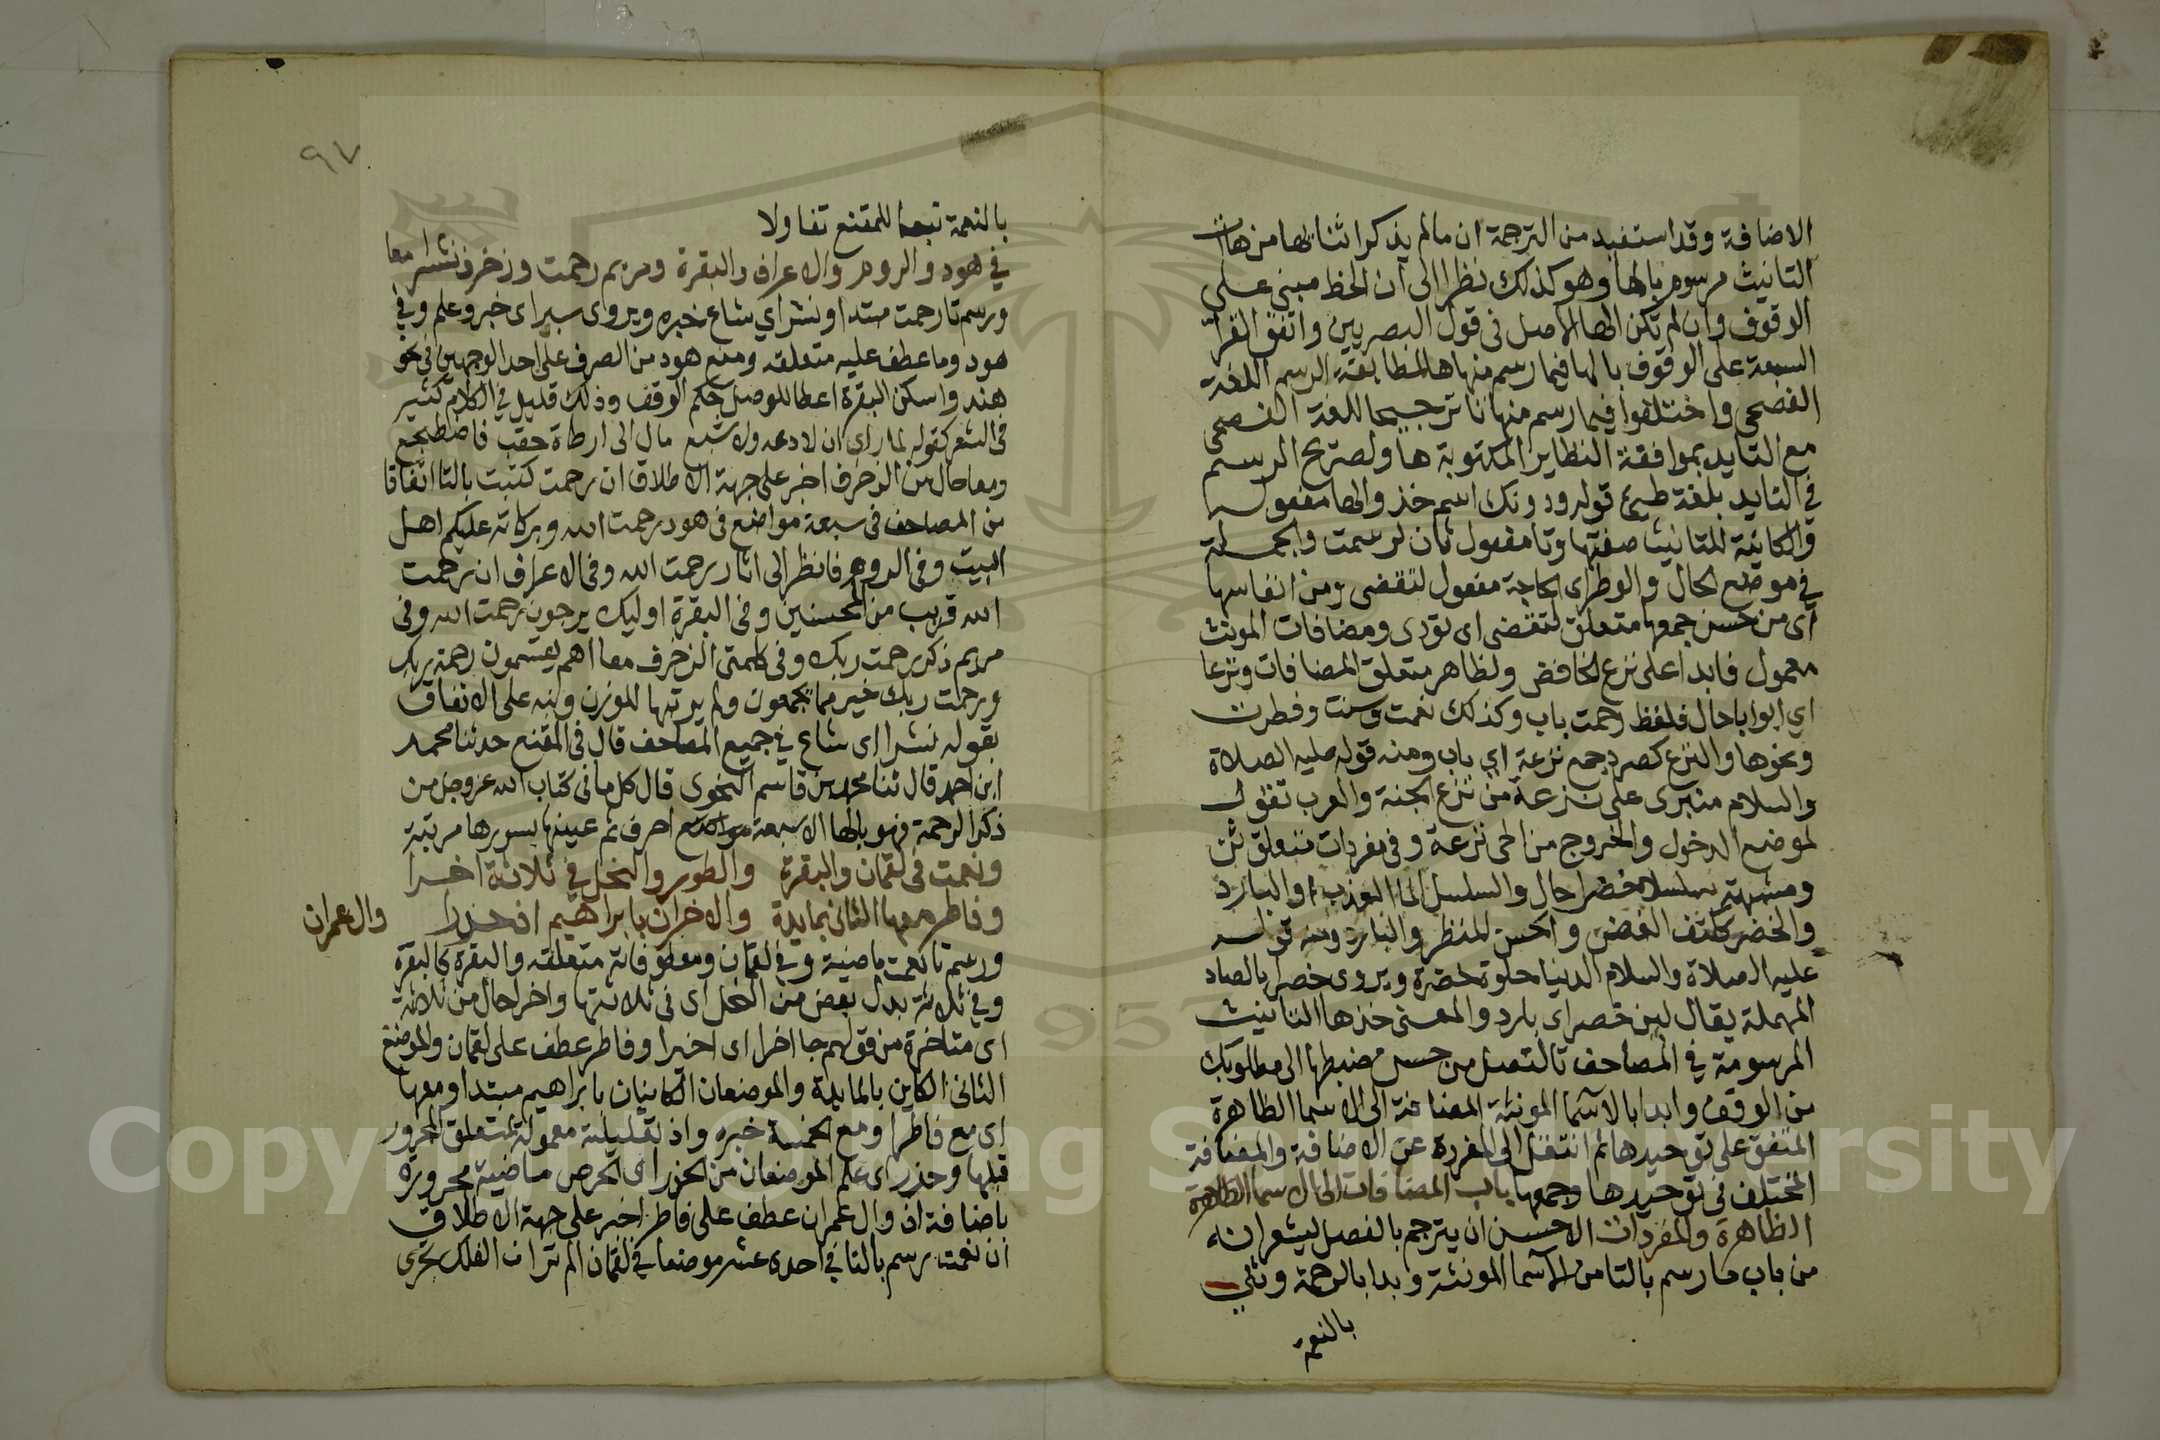 الاضافة وقد استفيد من الترجمة ان مالم يذكر اثنا لها من هات
التانيث مرسوم بالها وهو كذلك نظرا الى ان الخط مبنى على
الوقوف وان لم تكن الها الاصل فى قول البصريين واتفق القرا
السبعة على الوقوف بالها فيما رسم منها ها لمطابقة الرسم اللغة
الفصحى واختلفوا فيما رسم منها تا ترجيحا للغة الفصحى
مع التايد بموافقة النظاير المكتوبة ها ولصريح الرسم
في التايد بلغة طيئ قوله ودونك اسم خذ والها مفعوله
والكائنة للتانيث صفتها وتا مفعول ثان لرسمت والجملة
في موضع الحال والوطر اى الحاجة مفعول لتقضى ومن انفاسها
اى من حسن جمعها متعلق لتقضى اى تودى ومضافات المونث
معمول فابدا على نزع الخافض ولظاهر متعلق المضافات ونزعا
اي ابوابا حال فلفظ رحمت باب وكذلك نعمت وسنت وفطرت
ونحوها والنزع كصرد جمع نزعة اي باب ومنه قوله عليه الصلاة
والسلام منبرى على نزعة من نزع الجنة والعرب تقول
لموضع الدخول والخروج من الحى نزعة وفى مفردات متعلق ثن
ومشبهتم سلسلا خضرا حال والسلسل الما العذب او البارد
والخضر ككتف الغض والحسن المنظر والبارد ومنه قوله
عليه الصلاة والسلام الدنيا حلوة خضرة ويروى خصرا بالصاد
المهملة يقال لبن خصر اى بارد والمعنى خذ ها التانيث
المرسومة في المصاحف تا لتصل من حسن ضبطها الى مطلوبك
من الوقف وابدا بالاسما المونثة المضافة الى الاسما الظاهرة
المتفق على توحيدها ثم انتقل الى المفردة عن الاضافة والمضافة
المختلف فى توحيدها وجمعها باب المضافات الى الاسما الظاهرة
الظاهرة والمفردات الاحسن ان يترجم بالفصل ليشعر انه
من باب ما رسم بالتا من الاسما المونثة وبدا بالرحمة وثنى
بالنعمة
٩٧
بالنعمة تبعا للمقنع تفاولا
في هود والروم والاعراف والبقرة ومريم رحمت وزخرف نشرا معا
ورسم تا رحمت مبتدا ونشر اي شاع خبره ويروى سبر اى خبر وعلم وفي
هود وما عطف عليه متعلقه ومنع هود من الصرف على احد الوجهين فى نحو
هند واسكن البقرة اعطا للوصل حكم الوقف وذلك قليل في الكلام كثير
فى الشعر كقوله لما راى ان لا دعه ولا شبع مال الى ارطاة حقف فاضطجع
ومعا حال من الزخرف اخبر على جهة الاطلاق ان رحمت كتبت بالتا اتفاقا
من المصاحف فى سبعة مواضع فى هود رحمت الله وبركاته عليكم اهل
البيت وفى الروم فانظر الى اثار رحمت الله وفى الاعراف ان رحمت
الله قريب من المحسنين وفى البقرة اوليك يرجون رحمت الله وفى
مريم ذكر رحمت ربك وفى كلمتى الزخرف معا اهم يقسمون رحمة ربك
ورحمت ربك خير مما يجمعون ولم يرتبها للوزن ونبه على الاتفاق
بقوله نشرا اى شاع في جميع المصاحف قال فى المقنع حدثنا محمد
ابن احمد قال ثنا محمد بن قاسم النحوى قال كل ما فى كتاب الله عز وجل من
ذكر الرحمة فهو بالها الا سبعة مواضع احرف ثم عينها بسورها مرتبة
ونعمت فى لقمان والبقرة والطور والنحل في ثلاثة اخرا
وفاطر معها الثانى بمايدة والاخران بابراهيم اذ حزرا
وال عمران
ورسم تا نعمت ماضية وفي لقمان ومعطوفاته متعلقه والبقرة كالبقرة
وفي ثلاثة بدل بعض من النحل اى فى ثلاثتها واخر احال من ثلاثة
اى متاخرة من قولهم جا اخرا اى اخيرا وفاطر عطف على لقمان والموضع
الثانى الكاين بالمايدة والموضعان الكاينان بابراهيم مبتدا ومعها
اى مع فاطر او مع الخمسة خبره واذ تعليلية معمولة لمتعلق المجرور
قبلها وحزر اى علم الموضعان من الحزر اى الخرص ماضية مجرورة
باضافة اذ وال عمران عطف على فاطر اخبر على جهة الاطلاق
ان نعمت رسم بالتا في احدى عشر موضعا في لقمان الم تر ان الفلك تجرى